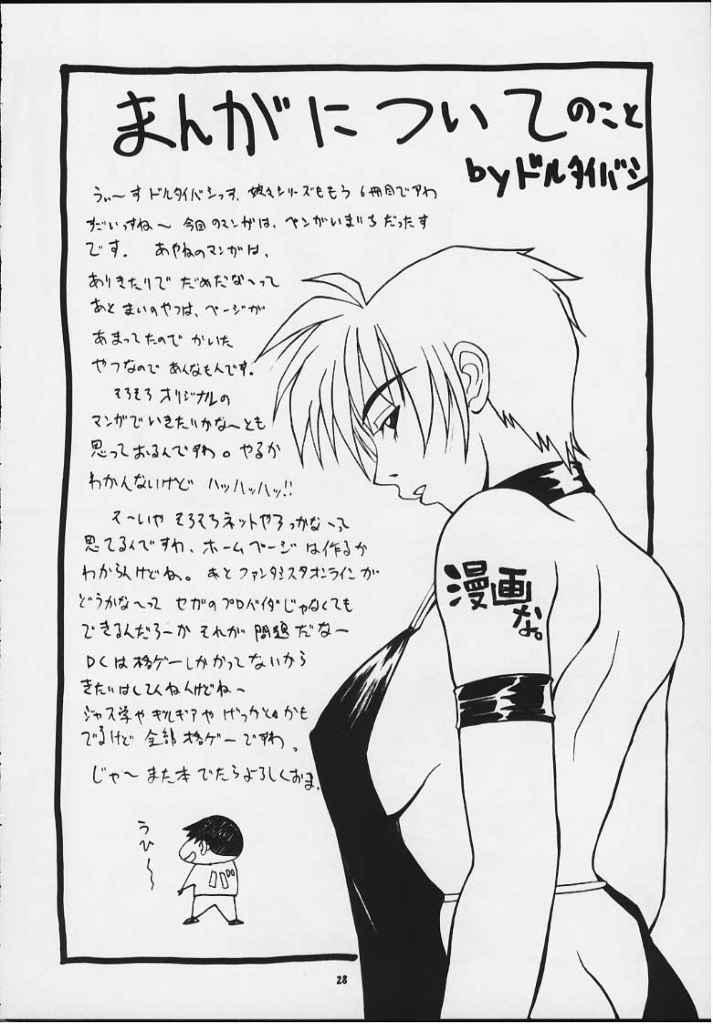 まんがについてのこと
byドルタイバシ
うぃ〜すドルタイバシっす、シリーズももう6冊目ですわ
すごいっすね〜今回のマンガは、ペンがいまいちだったす
です。あやねのマンガは、
ありきたりでだめだな〜って
あとまいのやつは、ページが
あまってたのでかいた
やつなのであんなもんです。
そろそろオリジナルの
マンガでいきたいかな〜とも
思っておるんですわ。やるか
わかんないけどハッハッハッ!!
そ〜いやそろそろネットやろっかな〜って
思てるんですわ、ホームページは作るか
わからんけどね。あとファンタシスタオンラインが
どうかな〜ってセガのプロバイダじゃなくても
できるんだろーかそれが問題だなー
DCは格ゲーしかかってないから
きたいはしてんねんけどね〜
ジャス学やギルギアやげっかともかも
でるけど全部格ゲーですわ。
じゃ〜また本でたらよろしくおま。
漫画
な。
うひ〜〜
28